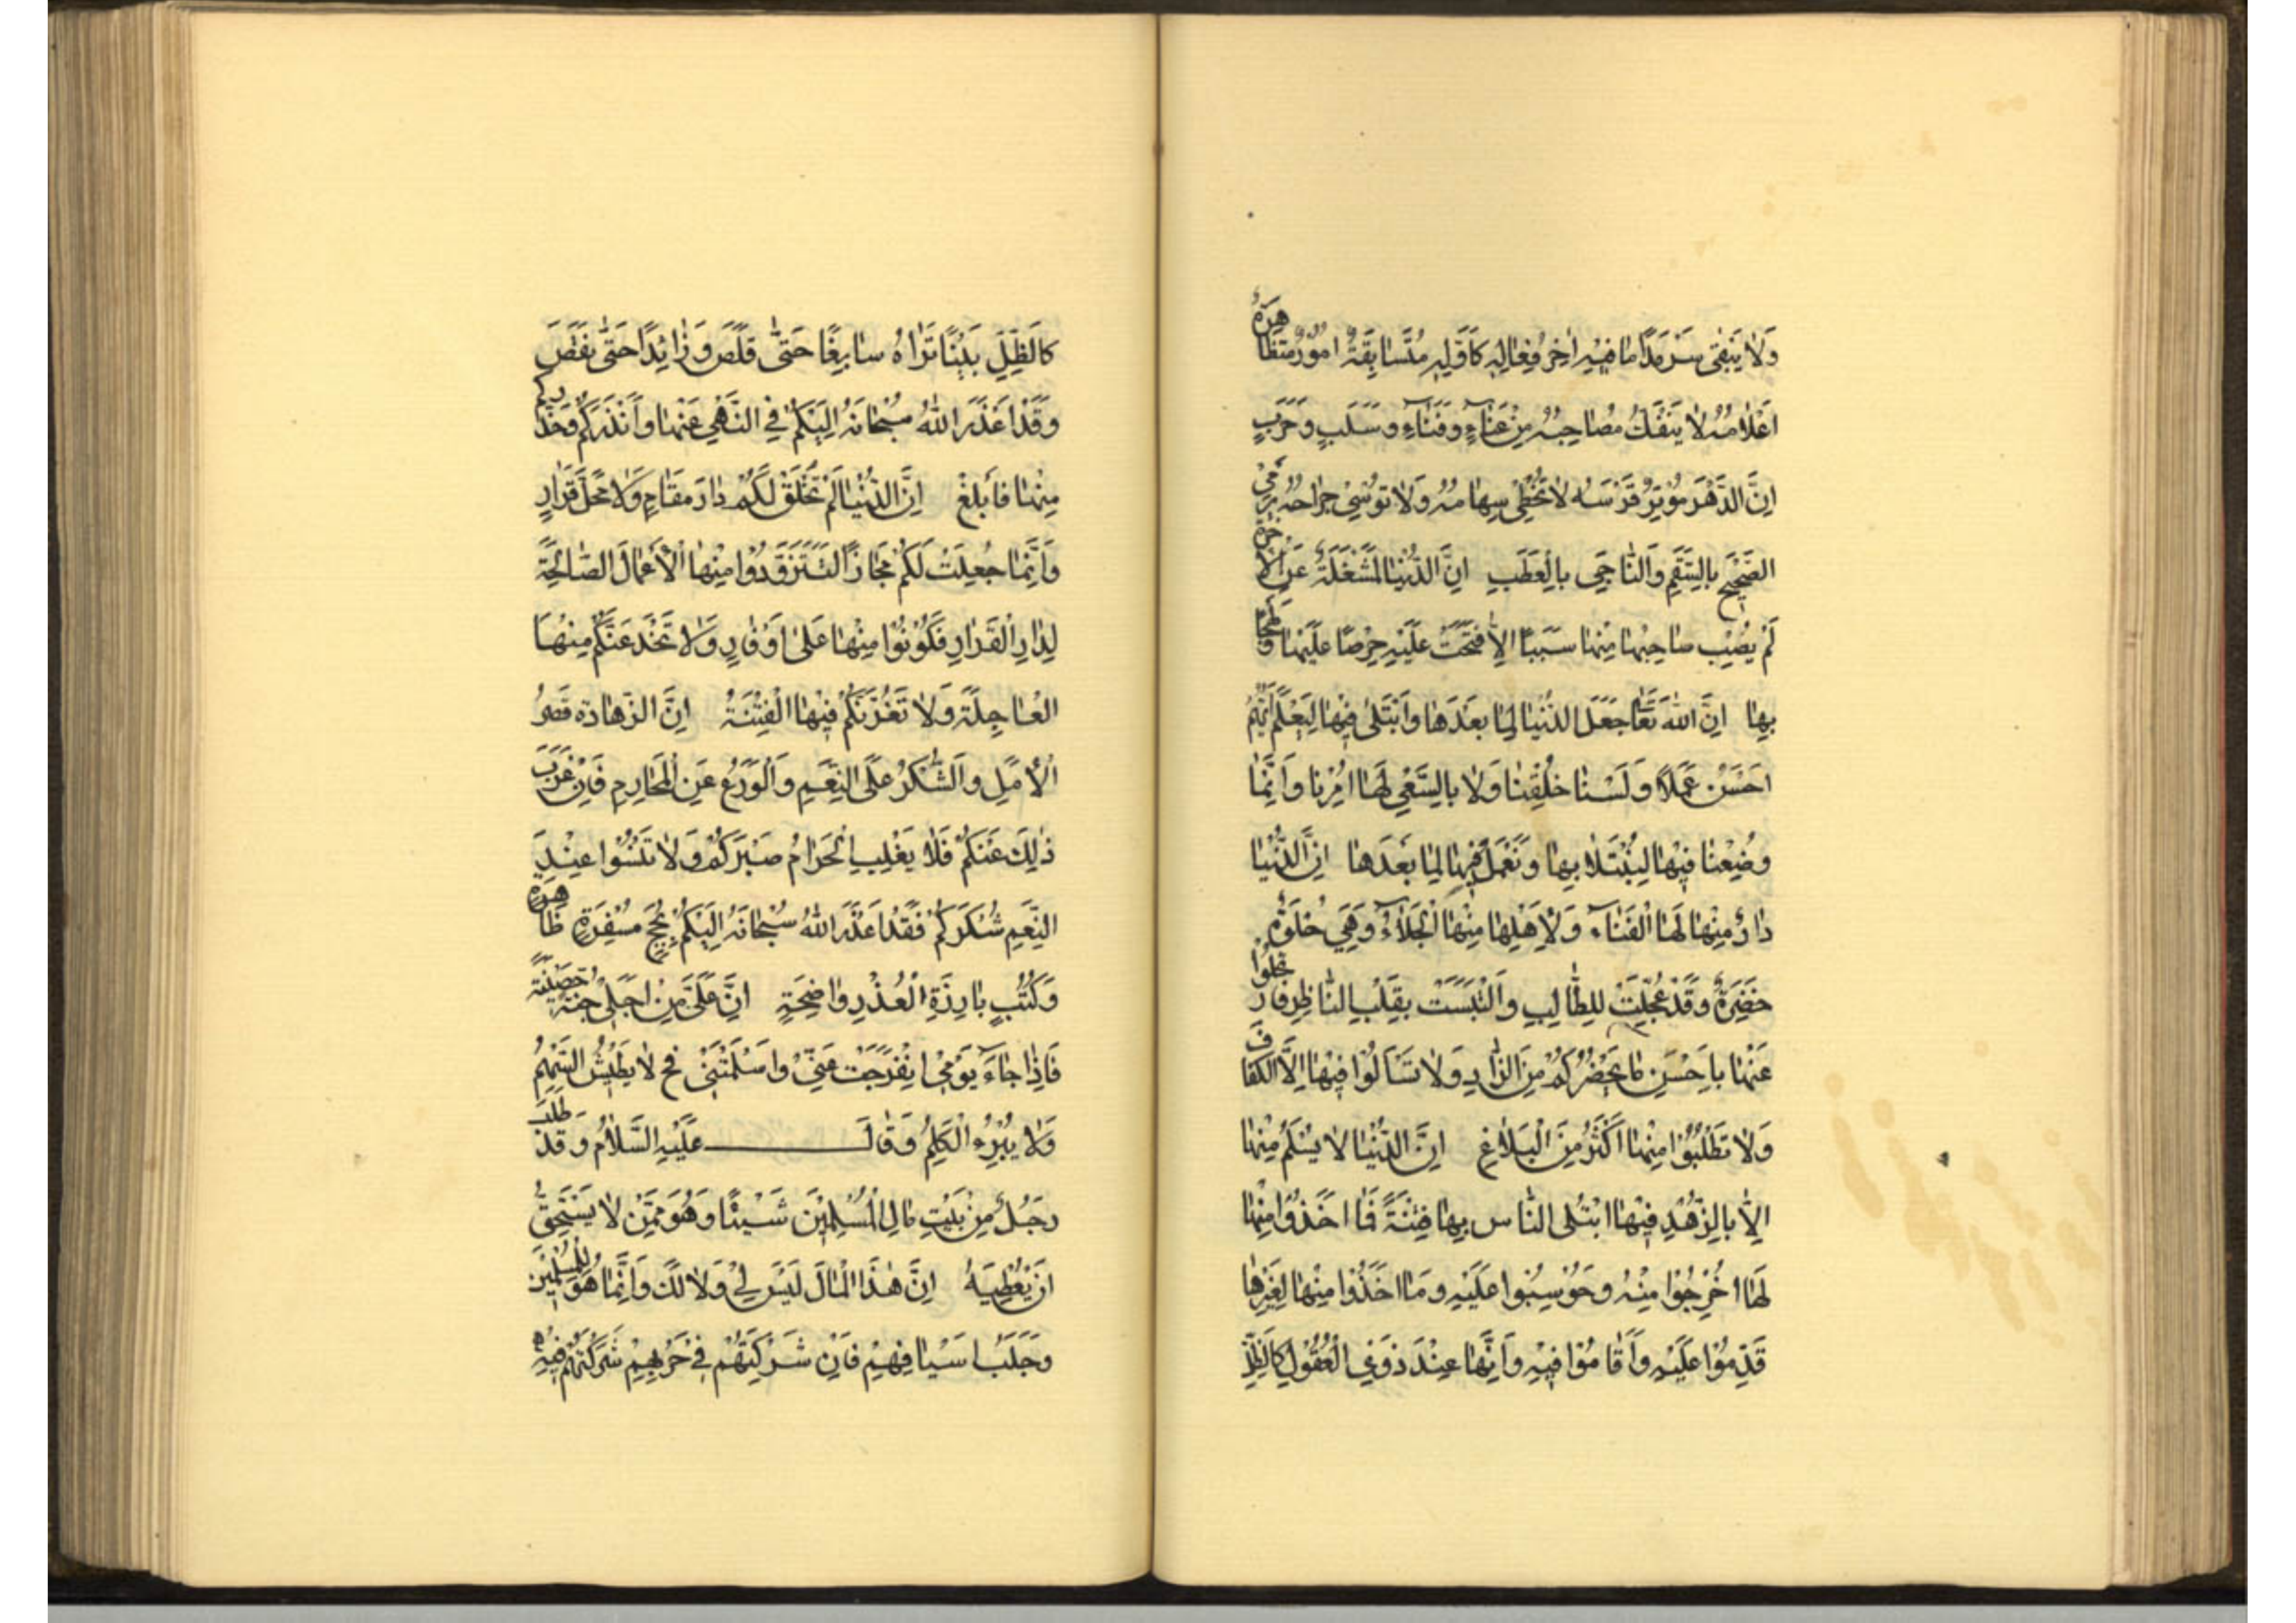 وَلَا يَبْقَى سَرْمَدًا مَا فِيهِ اٰخِرُ فِعَالِهِ كَاَوَّلِهِ مُتَسَابِقَةٌ اُمُورُهُ مُتَظَاهِرَةٌ
اَعْلَامُهُ لَا يَنْفَكُّ مُصَاحِبُهُ مِنْ عَنَاءٍ وَفَنَاءٍ وَسَلَبٍ وَحَرَبٍ
اِنَّ الدَّهْرَ مُوتِرٌ قَوْسَهُ لَا تُخْطِى سِهَامُهُ وَلَا تُوسٰى جِرَاحُهُ يَرْمِى
الصَّحِيحَ بِالسَّقَمِ وَالنَّاجِىَ بِالْعَطَبِ اِنَّ الدُّنْيَا لَمَشْغَلَةٌ عَنِ الْاٰخِرَةِ
لَمْ يُصِبْ صَاحِبُهَا مِنْهَا سَبَبًا اِلَّا فَتَحَتْ عَلَيْهِ حِرْصًا عَلَيْهَا وَلَهَجًا
بِهَا اِنَّ اللهَ تَعَالٰى جَعَلَ الدُّنْيَا لِمَا بَعْدَهَا وَابْتَلٰى فِيهَا لِيَعْلَمَ اَيُّهُمْ
اَحْسَنُ عَمَلًا وَلَسْنَا خُلِقْنَا وَلَا بِالسَّعْىِ لَهَا اُمِرْنَا وَاِنَّمَا
وُضِعْنَا فِيهَا لِنُبْتَلَا بِهَا وَنَعْمَلَ فِيهَا لِمَا بَعْدَهَا اِنَّ الدُّنْيَا
دَارٌ مِنْهَا لَهَا الْفَنَاءُ وَلِاَهْلِهَا مِنْهَا الْجَلَاءُ وَهِىَ حُلْوَةٌ
خَضِرَةٌ وَقَدْ عُجِّلَتْ لِلطَّالِبِ وَالْتَبَسَتْ بِقَلْبِ النَّاظِرِ فَارْتَحِلُوا
عَنْهَا بِاَحْسَنِ مَا يَحْضُرُكُمْ مِنَ الزَّادِ وَلَا تَسْاَلُوا فِيهَا اِلَّا الْكَفَافَ
وَلَا تَطْلُبُوا مِنْهَا اَكْثَرَ مِنَ الْبَلَاغِ اِنَّ الدُّنْيَا لَا يُسْلَمُ مِنْهَا
اِلَّا بِالزُّهْدِ فِيهَا ابْتُلِى النَّاسُ بِهَا فِتْنَةً فَمَا اَخَذُوا مِنْهَا
لَهَا اُخْرِجُوا مِنْهُ وَحُوسِبُوا عَلَيْهِ وَمَا اَخَذُوا مِنْهَا لِغَيْرِهَا
قَدِمُوا عَلَيْهِ وَاَقَامُوا فِيهِ وَاِنَّهَا عِنْدَ ذَوِى الْعُقُولِ كَالظِّلِّ
كَالظِّلِّ بَيْنَا تَرَاهُ سَابِغًا حَتّٰى قَلَصَ وَزَائِدًا حَتّٰى نَقَصَ
وَقَدْ اَعْذَرَ اللهُ سُبْحَانَهُ اِلَيْكُمْ فِى النَّهْىِ عَنْهَا وَاَنْذَرَكُمْ وَحَذَّرَكُمْ
مِنْهَا فَاَبْلَغَ اِنَّ الدُّنْيَا لَمْ تُخْلَقْ لَكُمْ دَارَ مَقَامٍ وَلَا مَحَلَّ قَرَارٍ
وَاِنَّمَا جُعِلَتْ لَكُمْ مَجَازًا لِتَتَزَوَّدُوا مِنْهَا الْاَعْمَالَ الصَّالِحَةَ
لِدَارِ الْقَرَارِ فَكُونُوا مِنْهَا عَلٰى اَوْفَازٍ وَلَا تَخْدَعَنَّكُمْ مِنْهَا
الْعَاجِلَةُ وَلَا تَغُرَّنَّكُمْ فِيهَا الْفِتْنَةُ اِنَّ الزَّهَادَةَ قَصْرُ
الْاَمَلِ وَالشُّكْرُ عَلَى النِّعَمِ وَالْوَرَعُ عَنِ الْمَحَارِمِ فَاِنْ عَزَبَ
ذٰلِكَ عَنْكُمْ فَلَا يَغْلِبِ الْحَرَامُ صَبْرَكُمْ وَلَا تَنْسَوْا عِنْدَ
النِّعَمِ شُكْرَكُمْ فَقَدْ اَعْذَرَ اللهُ سُبْحَانَهُ اِلَيْكُمْ بِحُجَجٍ مُسْفِرَةٍ ظَاهِرَةٍ
وَكُتُبٍ بَارِزَةِ الْعُذْرِ وَاضِحَةٍ اِنَّ عَلَىَّ مِنْ اَجَلِى جُنَّةً حَصِينَةً
فَاِذَا جَاءَ يَوْمِى انْفَرَجَتْ عَنِّى وَاَسْلَمَتْنِى فح لَا يَطِيشُ السَّهْمُ
وَلَا يُبْرَءُ الْكَلِمُ وَقَالَ عَلَيْهِ السَّلَامُ وَقَدْ طَلَبَ
رَجُلٌ مِنْ بَيْتِ مَالِ الْمُسْلِمِينَ شَيْئًا وَهُوَ مِمَّنْ لَا يَسْتَحِقُّ
اَنْ يُعْطِيَهُ اِنَّ هٰذَا الْمَالَ لَيْسَ لِى وَلَا لَكَ وَاِنَّمَا هُوَ لِلْمُسْلِمِينَ
وَجَلَبُ اَسْيَافِهِمْ فَاِنْ شَرَكْتَهُمْ فِى حَرْبِهِمْ شَرَكْتَهُمْ فِيهِ